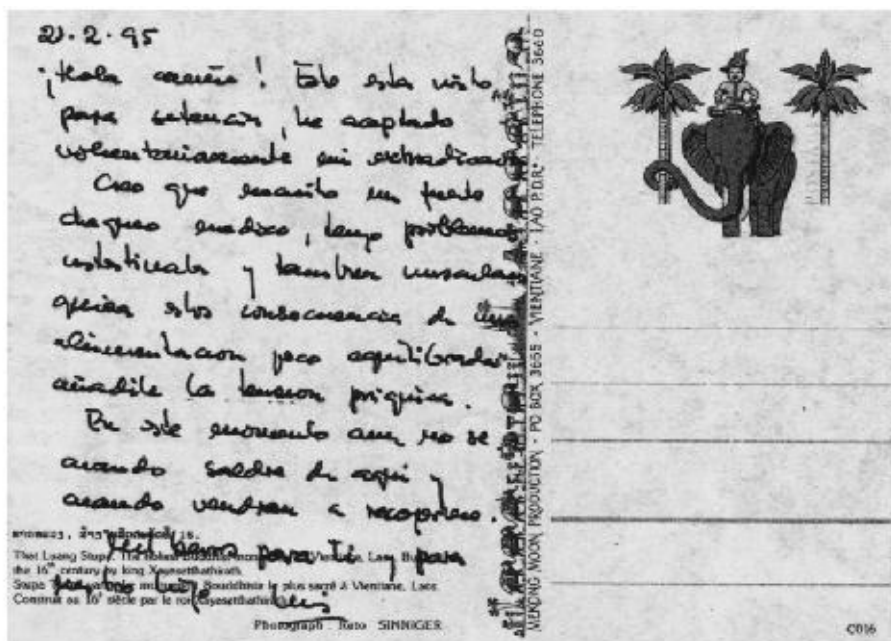 21.2.95
¡Hola cariño! Esto esta visto
para sentencia, he aceptado
voluntariamente mi extradicion
Creo que necesito un fuerte
chequeo medico, tengo problemas
intestinales y tambien musculares
quizas estos consecuencia de una
alimentacion poco equilibrada
añadile la tension psiquica.
En este momento aun no se
cuando saldre de aqui y
cuando vendran a recogernos.
Mil besos para Ti y para
hijo Luis
That Luang Stupa, The holiest Buddhist Vientiane, Laos
the 16th century by king Xayasetthathirath.
Stupa Bouddhiste le plus sacré à Vientiane, Laos
Construit au 16e siècle par le roi Xayasetthathirath
Photograph : Reto SINNIGER
MEKONG MOON PRODUCTION - PO BOX 3655 - VIENTIANE - LAO P.D.R. - TELEPHONE 3660
C016